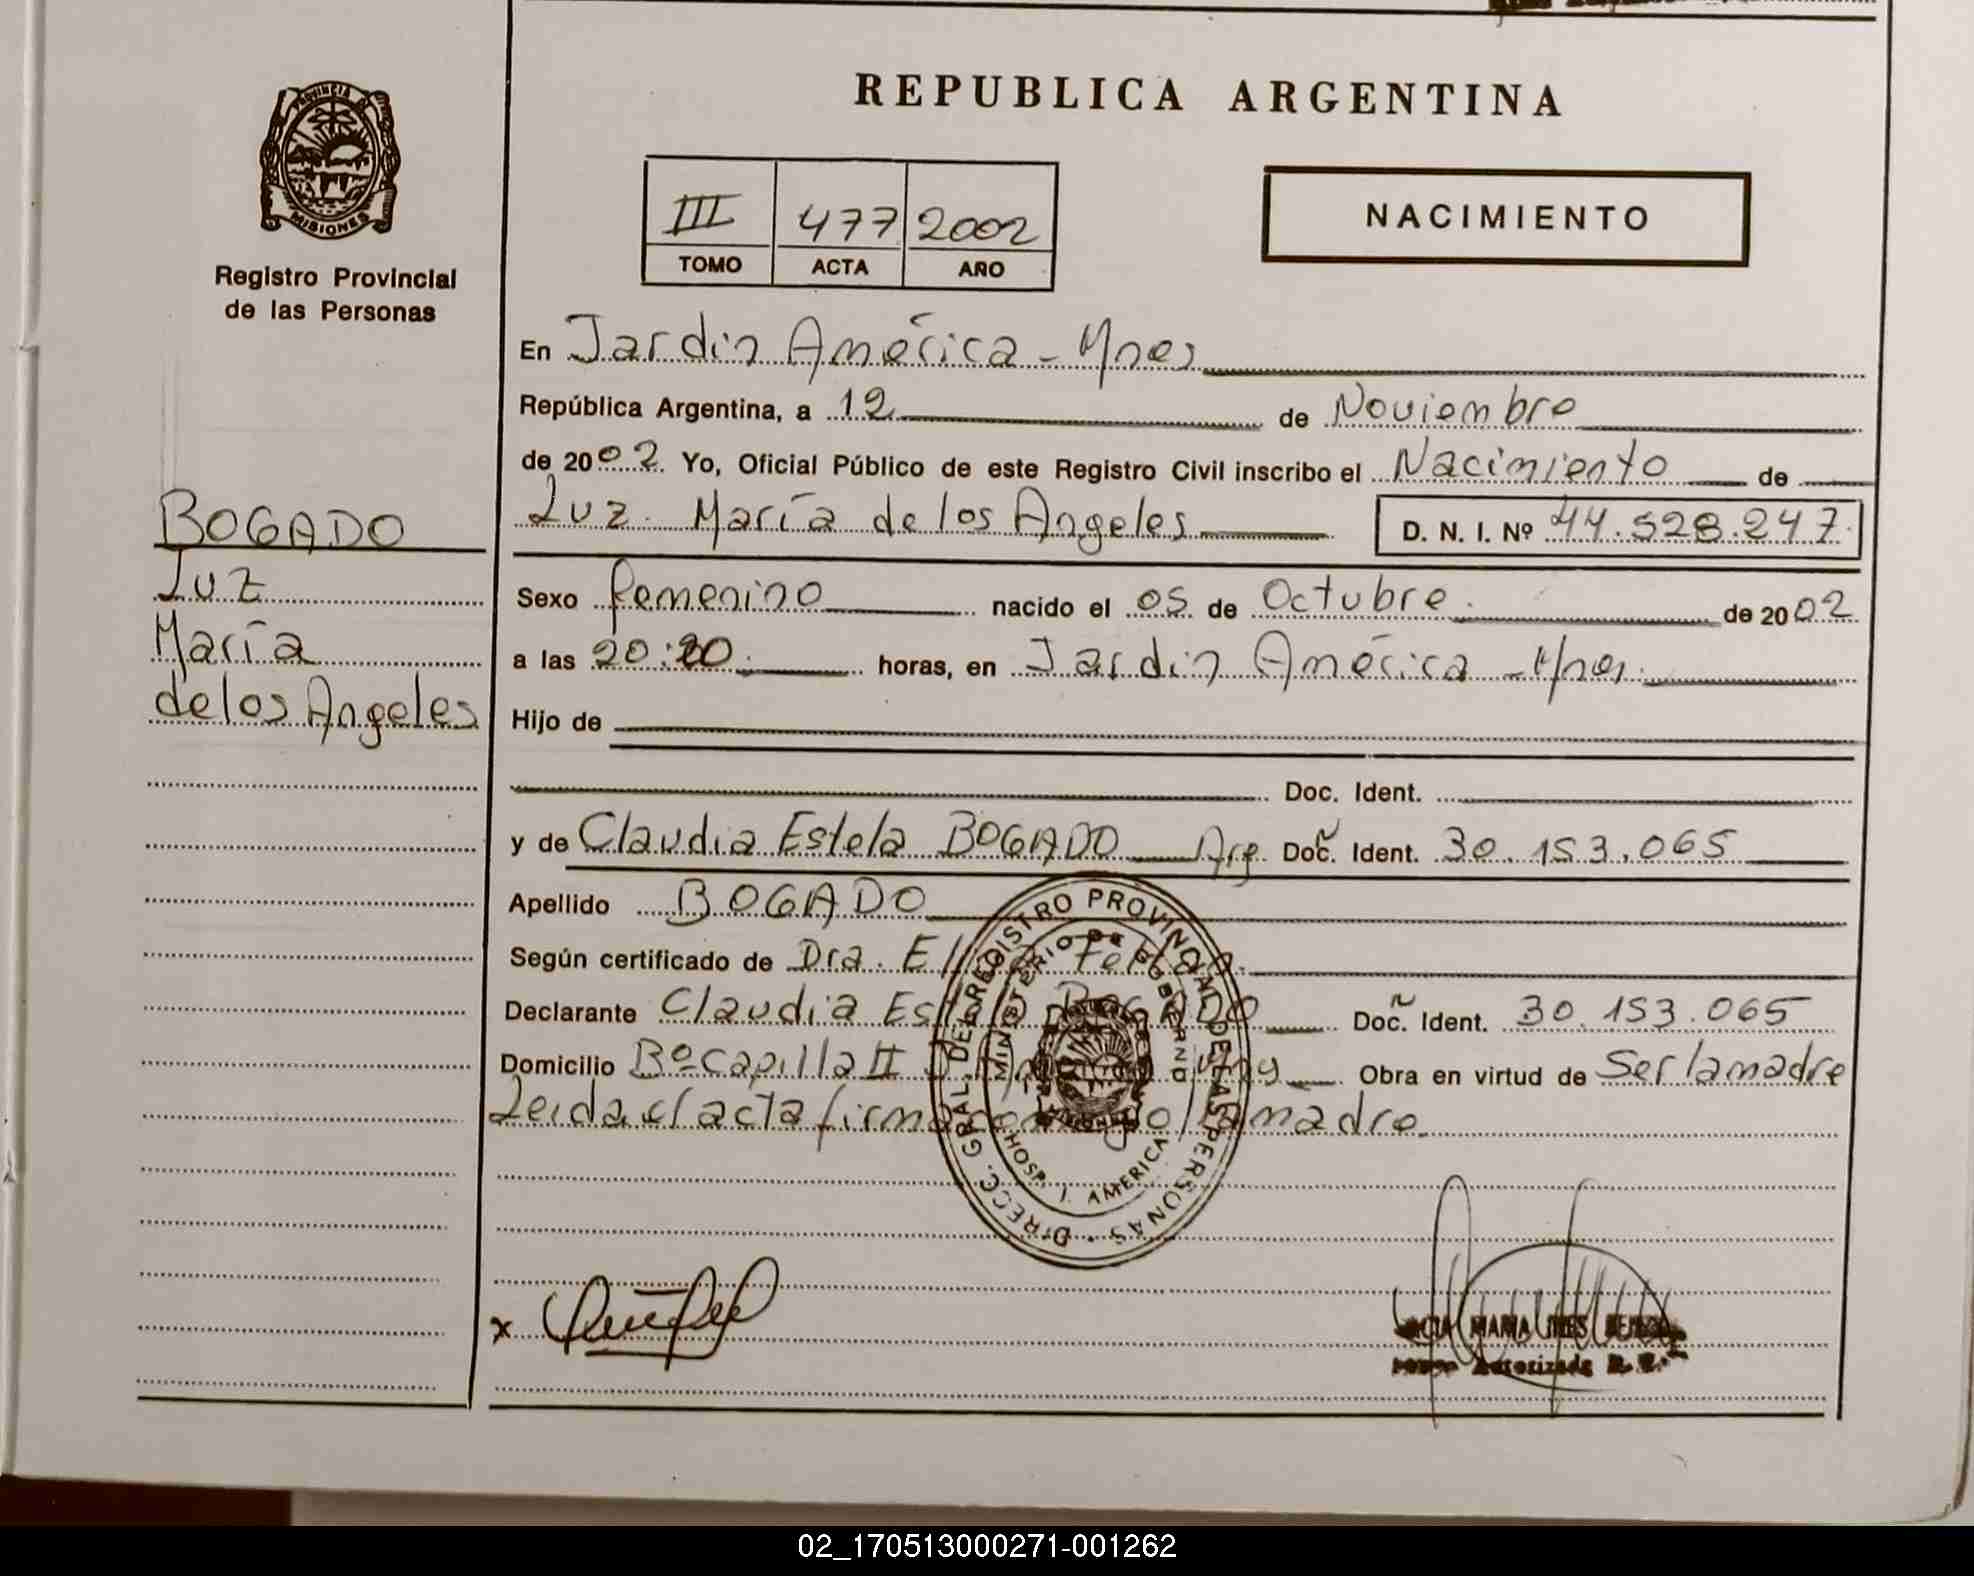 REPUBLICA ARGENTINA
PROVINCIA DE
MISIONES
Registro Provincial
de las Personas
III 477 2002
TOMO ACTA AÑO
NACIMIENTO
En Jardin América - Mnes
República Argentina, a 12 de Noviembre
de 2002. Yo, Oficial Público de este Registro Civil inscribo el Nacimiento de
Luz María de los Angeles D. N. I. Nº 44.528.247
BOGADO
Luz
María
de los Angeles
Sexo femenino nacido el 05 de Octubre de 2002
a las 20:20 horas, en Jardin América - Mnes
Hijo de
Doc. Ident.
y de Claudia Estela BOGADO Arg. Doc. Ident. 30.153.065
Apellido BOGADO
Según certificado de Dra.
Declarante Claudia Estela BOGADO Doc. Ident. 30.153.065
Domicilio Bº Capilla II Obra en virtud de Ser la madre
Leida el acta firma conmigo la madre
DIRECC. GRAL. DEL REGISTRO PROVINCIAL DE LAS PERSONAS
MINISTERIO DE GOBIERNO
HOSP. J. AMERICA
x
MARIA INES
Autorizada R. P.
02_170513000271-001262